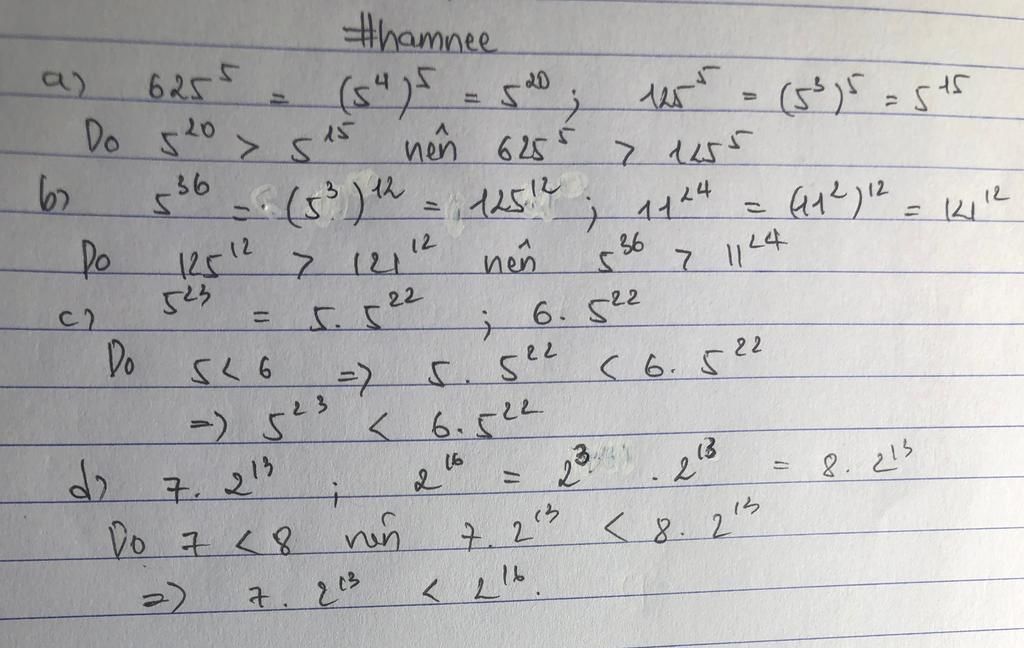 #hamnee
a) 625⁵ = (5⁴)⁵ = 5²⁰ ; 125⁵ = (5³)⁵ = 5¹⁵
Do 5²⁰ > 5¹⁵ nên 625⁵ > 125⁵
b) 5³⁶ = (5³)¹² = 125¹² ; 11²⁴ = (11²)¹² = 121¹²
Do 125¹² > 121¹² nên 5³⁶ > 11²⁴
c) 5²³ = 5. 5²² ; 6. 5²²
Do 5 < 6 => 5. 5²² < 6. 5²²
=> 5²³ < 6. 5²²
d) 7. 2¹³ ; 2¹⁶ = 2³ . 2¹³ = 8. 2¹³
Do 7 < 8 nên 7. 2¹³ < 8. 2¹³
=> 7. 2¹³ < 2¹⁶.